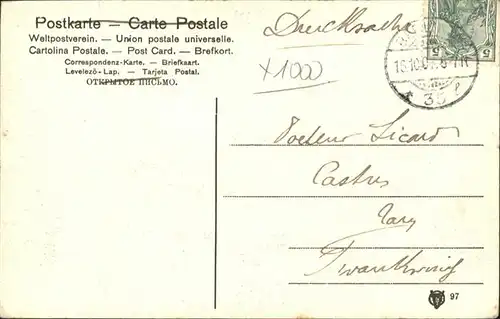 Postkarte — Carte Postale
Weltpostverein. — Union postale universelle.
Cartolina Postale. — Post Card. — Brefkort.
Correspondenz-Karte. — Briefkaart.
Levelező-Lap. — Tarjeta Postal.
ОТКРЫТОЕ ПИСЬМО.
Drucksache
x1000
5 5
35
Docteur Sicard
Castres
Tarn
Frankreich
97